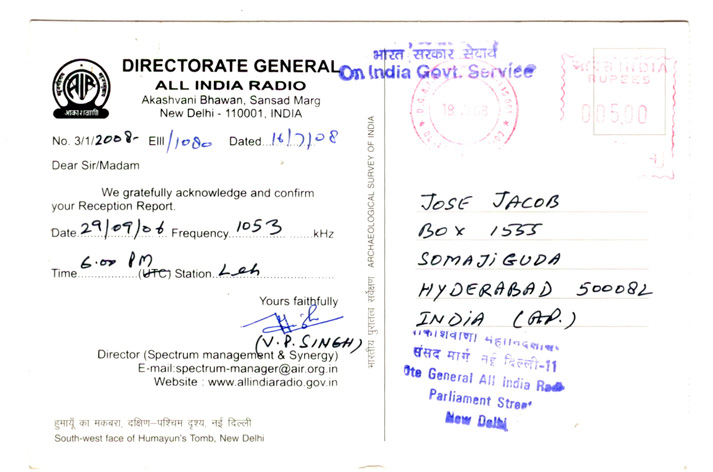 DIRECTORATE GENERAL
ALL INDIA RADIO
Akashvani Bhawan, Sansad Marg
New Delhi - 110001, INDIA
AIR
आकाशवाणी
No. 3/1/2008- EIII/1080 Dated...16/7/08
Dear Sir/Madam
We gratefully acknowledge and confirm
your Reception Report.
Date..29/09/06 Frequency...1053...kHz
Time...6.00 PM...(UTC) Station...Leh
Yours faithfully
(V.P. SINGH)
Director (Spectrum management & Synergy)
E-mail:spectrum-manager@air.org.in
Website : www.allindiaradio.gov.in
हुमायूँ का मकबरा, दक्षिण-पश्चिम दृश्य, नई दिल्ली
South-west face of Humayun's Tomb, New Delhi
भारतीय पुरातत्व सर्वेक्षण ARCHAEOLOGICAL SURVEY OF INDIA
भारत सरकार सेवार्थ
On India Govt. Service
भारत INDIA
RUPEES
005.00
JOSE JACOB
BOX 1555
SOMAJIGUDA
HYDERABAD 500082
INDIA (A.P.)
संसद मार्ग नई दिल्ली-11
Dte General All India
Parliament Street
New Delhi